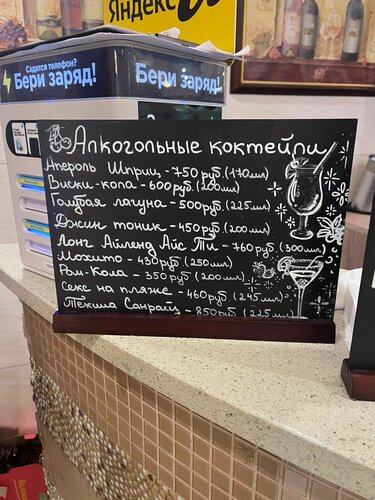 Яндекс
Садится телефон?
Бери заряд!
Бери заряд!
Алкогольные коктейли
Апероль Шприц - 750 руб (170мл)
Виски-кола - 600руб. (200мл)
Голубая лагуна - 500руб (225мл)
Джин тоник - 450руб. (200мл)
Лонг Айленд Айс Ти - 760руб. (300мл)
Мохито - 430руб (250мл)
Ром-Кола - 350руб (200мл)
Секс на пляже - 460руб (245мл)
Текила Санрайз - 850руб (225мл)